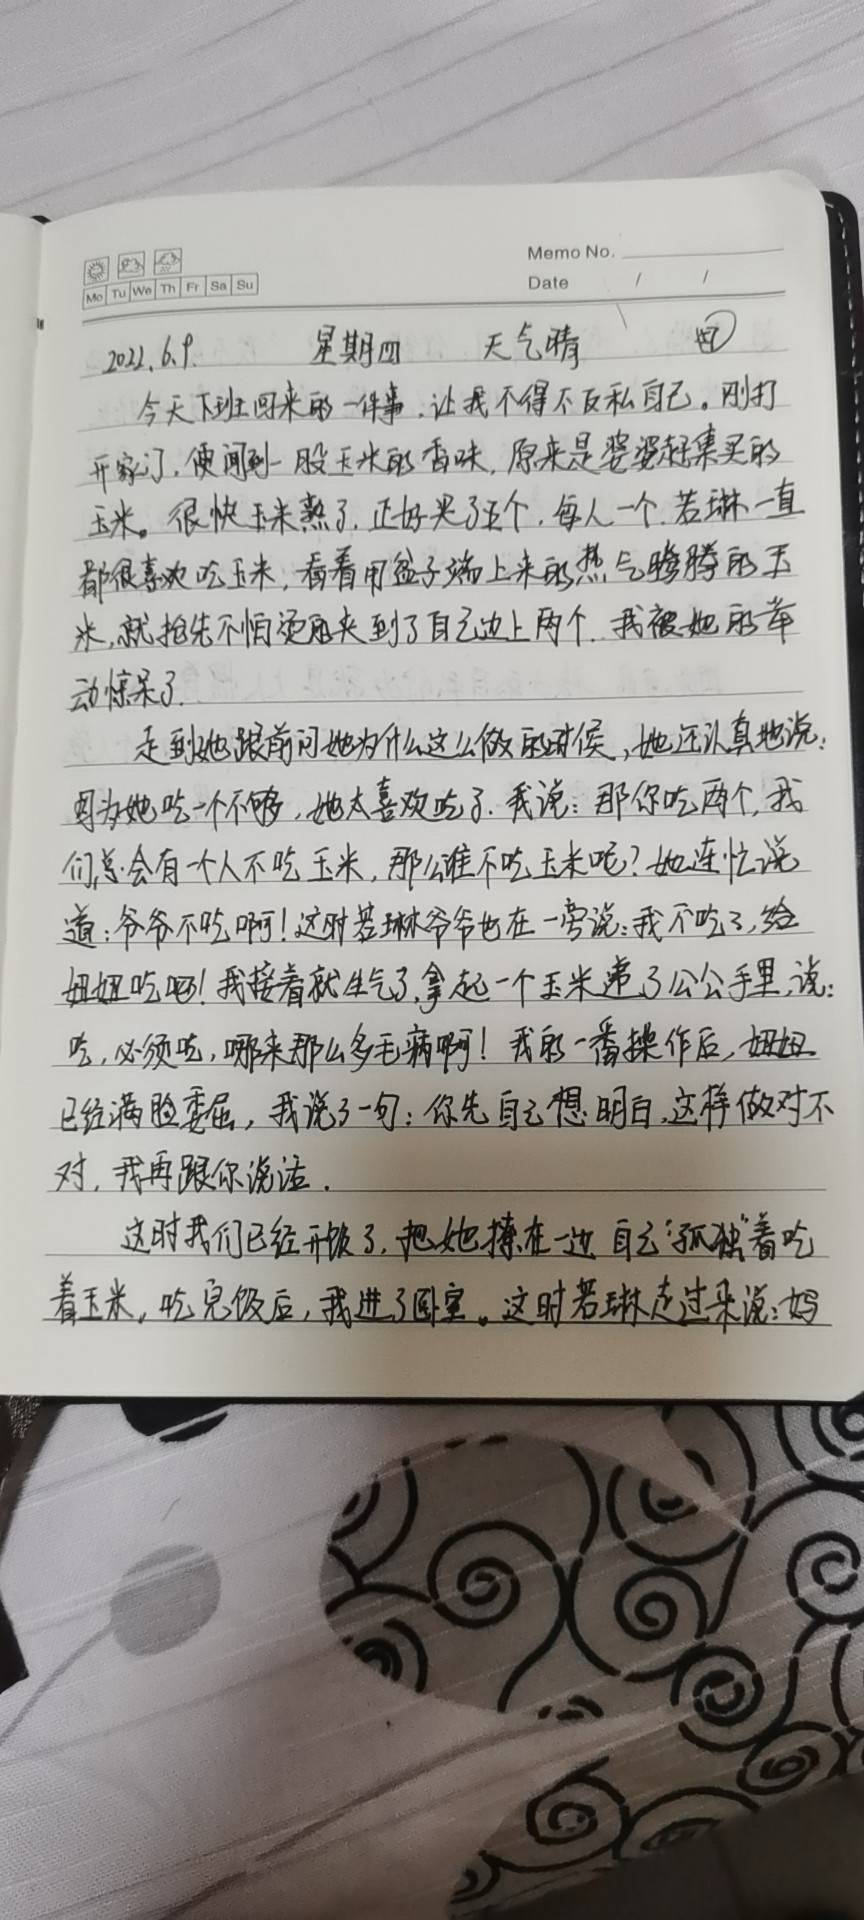 Memo No.
Mo Tu We Th Fr Sa Su
Date / /
2022.6.9. 星期四 天气晴
今天下班回来的一件事，让我不得不反私自己。刚打
开家门，便闻到一股玉米的香味，原来是婆婆赶集买的
玉米。很快玉米熟了，正好煮了五个，每人一个，若琳一直
都很喜欢吃玉米，看着用盆子端上来的热气腾腾的玉
米，就抢先不怕烫的夹到了自己边上两个，我被她的举
动惊呆了。
走到她跟前问她为什么这么做的时候，她还认真地说：
因为她吃一个不够，她太喜欢吃了。我说：那你吃两个，我
们总会有一个人不吃玉米，那么谁不吃玉米呢？她连忙说
道：爷爷不吃啊！这时若琳爷爷也在一旁说：我不吃了，给
妞妞吃吧！我接着就生气了，拿起一个玉米递了公公手里，说：
吃，必须吃，哪来那么多毛病啊！我的一番操作后，妞妞
已经满脸委屈，我说了一句：你先自己想明白，这样做对不
对，我再跟你说话。
这时我们已经开饭了，把她撩在一边 自己“孤独”着吃
着玉米，吃完饭后，我进了卧室。这时若琳走过来说：妈